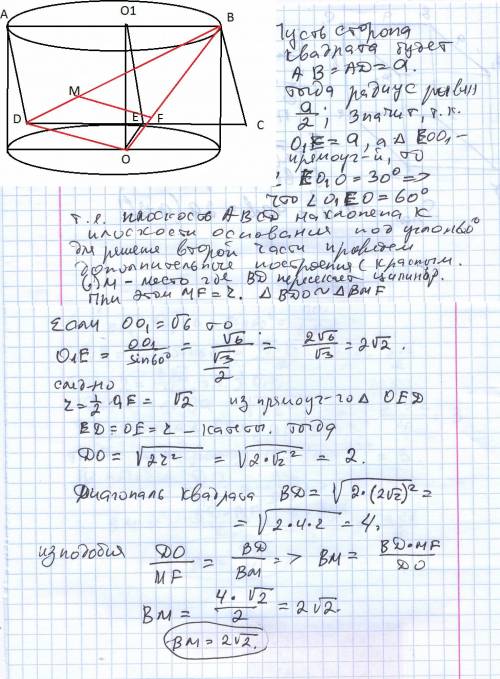 A O1 B
M
D E F C
O
Пусть сторона
квадрата будет
AB = AD = a.
тогда радиус равен
a/2; значит, т.к.
O₁E = a, а △ EOO₁ –
прямоуг-й, то
∠ EO₁O = 30° =>
что ∠O₁EO = 60°
т.е. плоскость ABCD наклонена к
плоскости основания под углом 60°
для решения второй части проведем
дополнительные построения (красным.
M – место где BD пересекает цилиндр.
При этом MF = r. △ BDO ∾ △ BMF
Если OO₁ = √6 то
O₁E = OO₁/sin60° = √6/(√3/2) = 2√6/√3 = 2√2.
след-но
r = 1/2 O₁E = √2 из прямоуг-го △ OED
ED = OE = r – катеты. тогда
DO = √(2r²) = √(2·√2²) = 2.
Диагональ квадрата BD = √(2·(2√2)²) =
= √(2·4·2) = 4,
из подобия DO/MF = BD/BM => BM = BD·MF/DO
BM = 4·√2/2 = 2√2.
BM = 2√2.